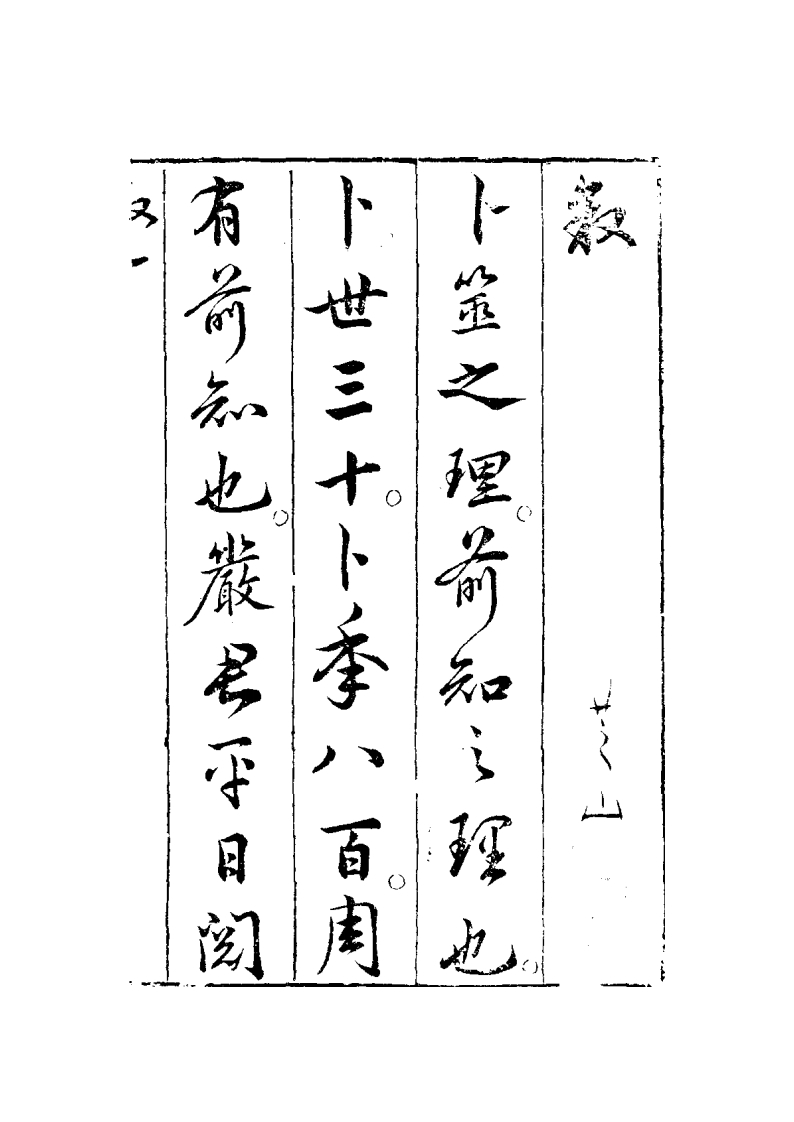 敘
芝山
卜筮之理前知之理也
卜世三十卜季八百周
有前知也嚴君平日閱
一